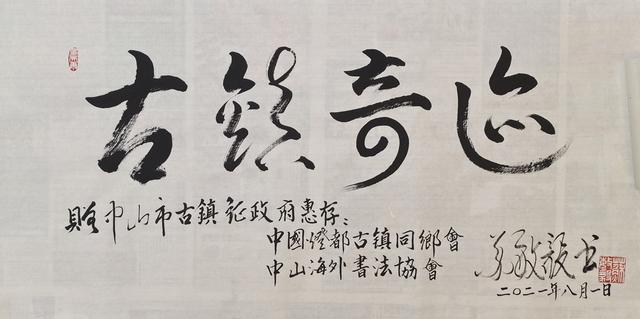 古鎮奇迹
贈中山市古鎮鎮政府惠存：
中國燈都古鎮同鄉會
中山海外書法協會
敏毅书
二〇二一年八月一日